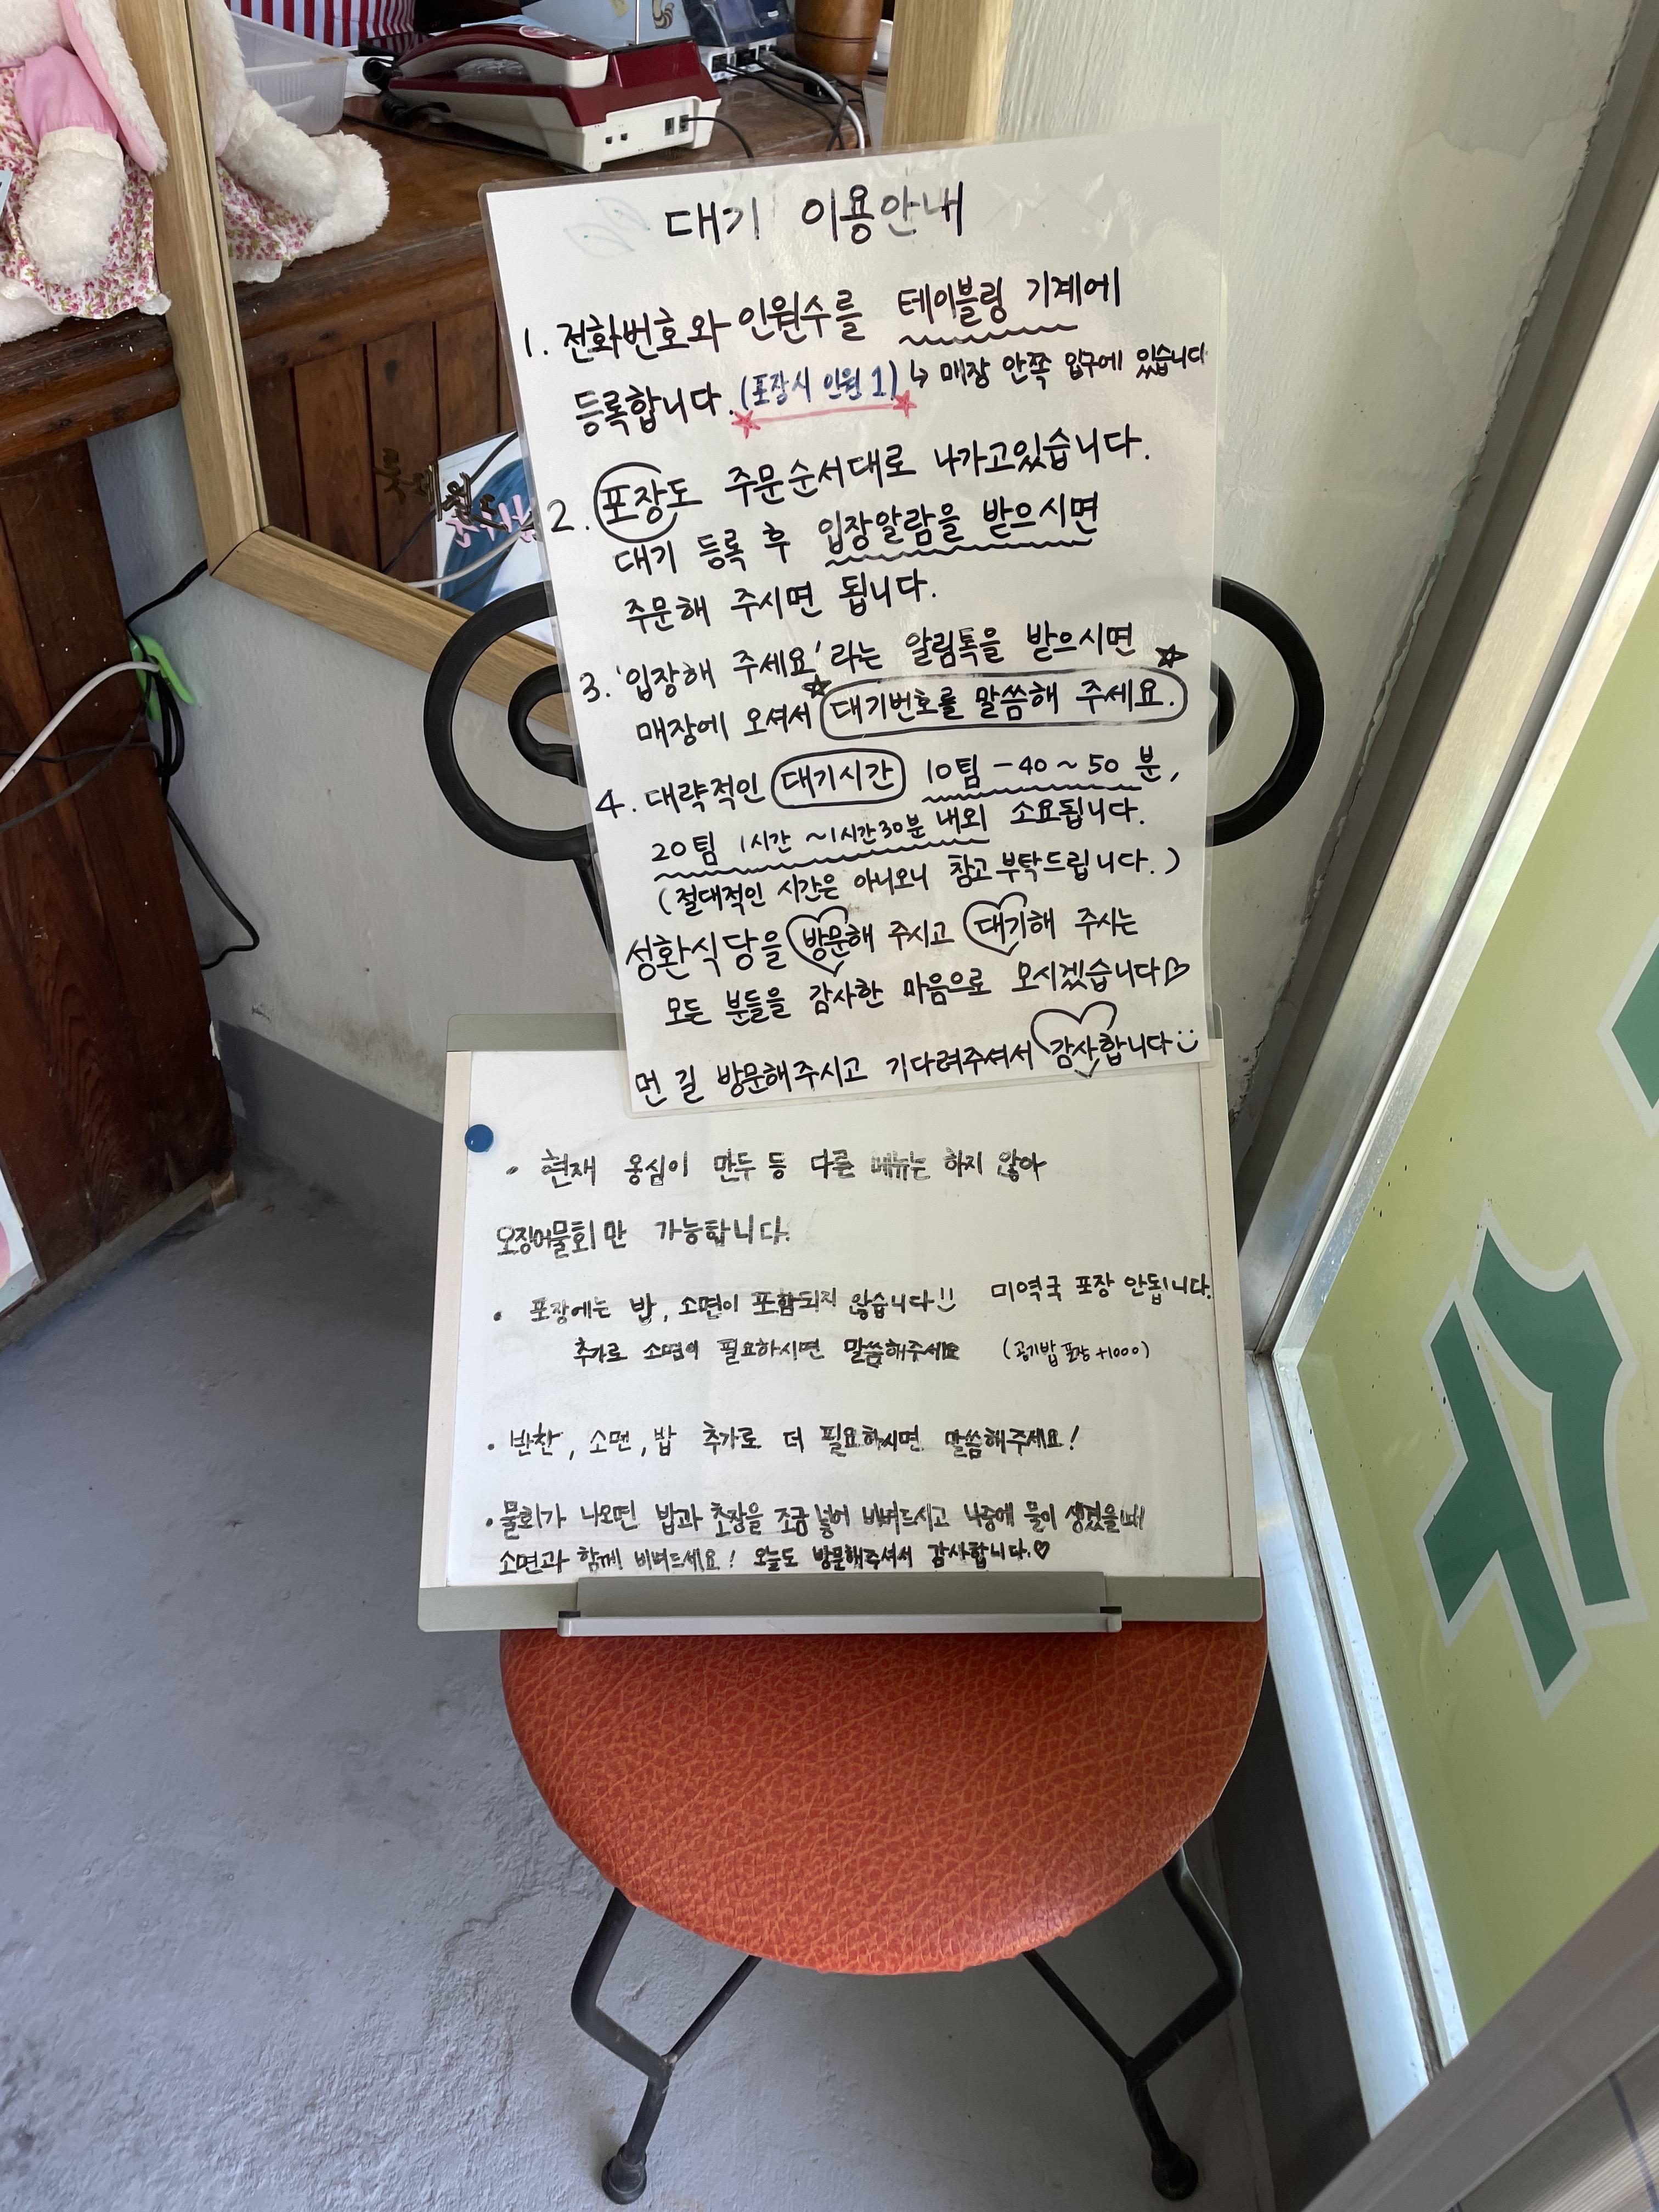 대기 이용안내
1. 전화번호와 인원수를 테이블링 기계에
등록합니다. (포장시 인원 1) ↳ 매장 안쪽 입구에 있습니다
2. 포장도 주문순서대로 나가고있습니다.
대기 등록 후 입장알람을 받으시면
주문해 주시면 됩니다.
3. '입장해 주세요'라는 알림톡을 받으시면
매장에 오셔서 ☆대기번호를 말씀해 주세요.☆
4. 대략적인 대기시간 10팀 - 40 ~ 50 분,
20팀 1시간 ~ 1시간30분 내외 소요됩니다.
(절대적인 시간은 아니오니 참고부탁드립니다.)
성환식당을 방문해 주시고 대기해 주시는
모든 분들을 감사한 마음으로 모시겠습니다♡
먼 길 방문해주시고 기다려주셔서 감사합니다
• 현재 옹심이 만두 등 다른 메뉴는 하지 않아
오징어물회만 가능합니다.
• 포장에는 밥, 소면이 포함되지 않습니다!! 미역국 포장 안됩니다.
추가로 소면이 필요하시면 말씀해주세요 (공기밥 포장 +1000)
• 반찬, 소면, 밥 추가로 더 필요하시면 말씀해주세요!
• 물회가 나오면 밥과 초장을 조금 넣어 비벼드시고 나중에 물이 생겼을때
소면과 함께 비벼드세요! 오늘도 방문해주셔서 감사합니다.♡